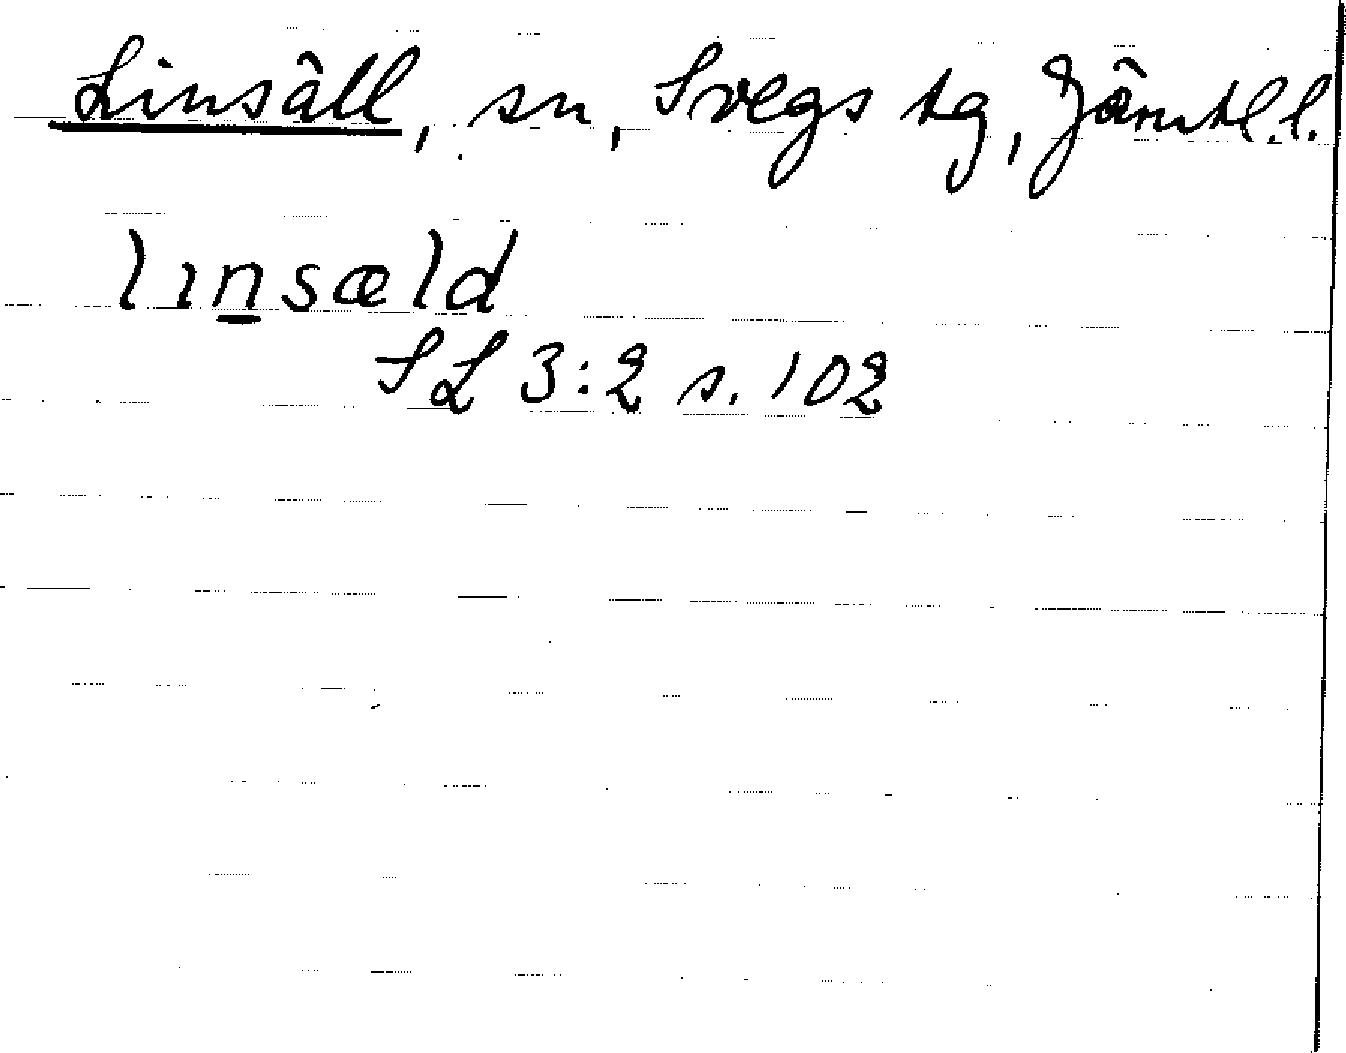 Linsäll, sn, Svegs tg, Jämtl. l.
lınsæld
SL 3:2 s. 102